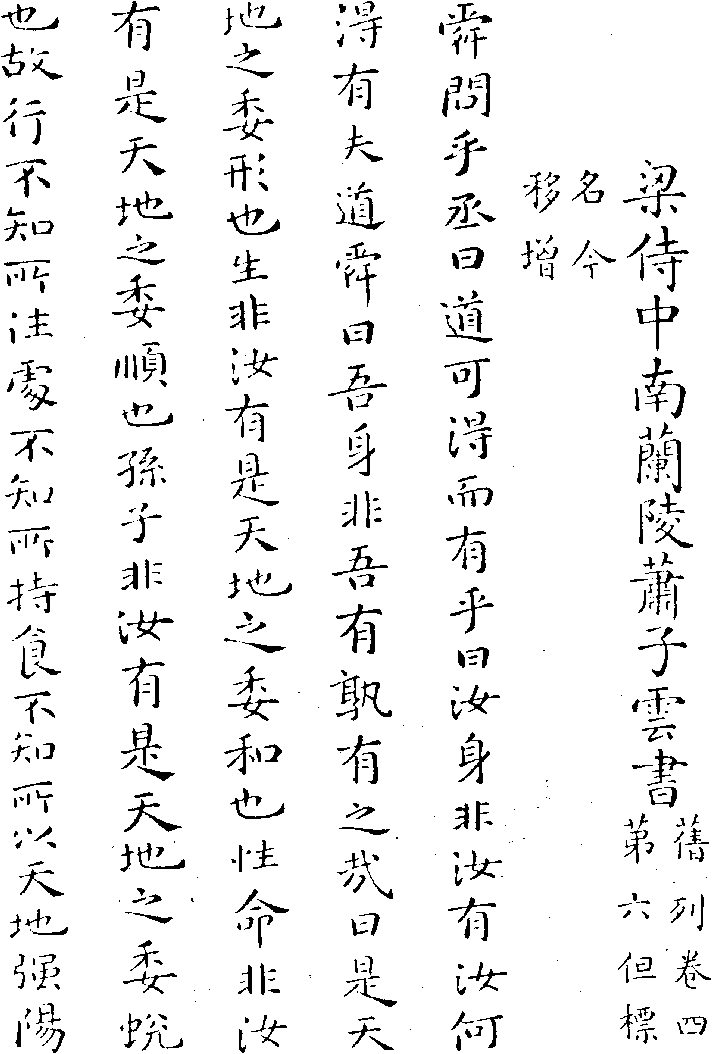 梁侍中南蘭陵蕭子雲書
舊列卷四
第六但標
名今
移增
舜問乎丞曰道可淂而有乎曰汝身非汝有汝何
淂有夫道舜曰吾身非吾有孰有之㢤曰是天
地之委形也生非汝有是天地之委和也性命非汝
有是天地之委順也孫子非汝有是天地之委蛻
也故行不知所往處不知所持食不知所以天地强陽